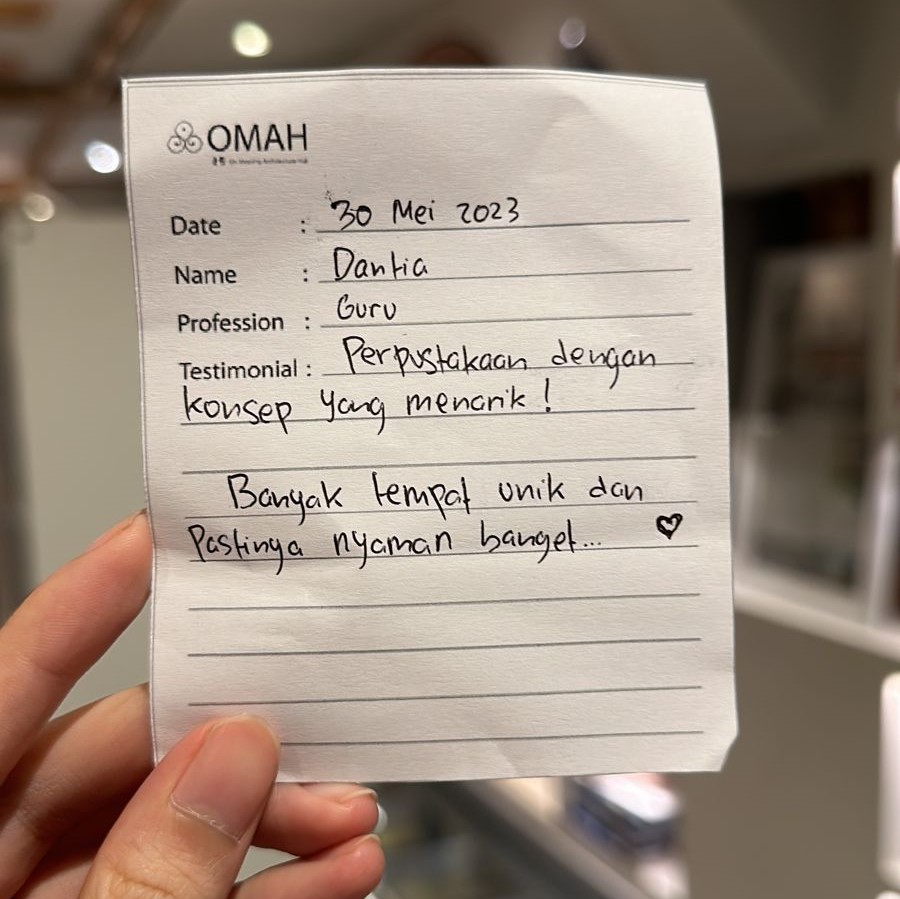 OMAH
Date : 30 Mei 2023
Name : Dantia
Profession : Guru
Testimonial : Perpustakaan dengan
konsep yang menarik!
Banyak tempat unik dan
Pastinya nyaman banget... ♡